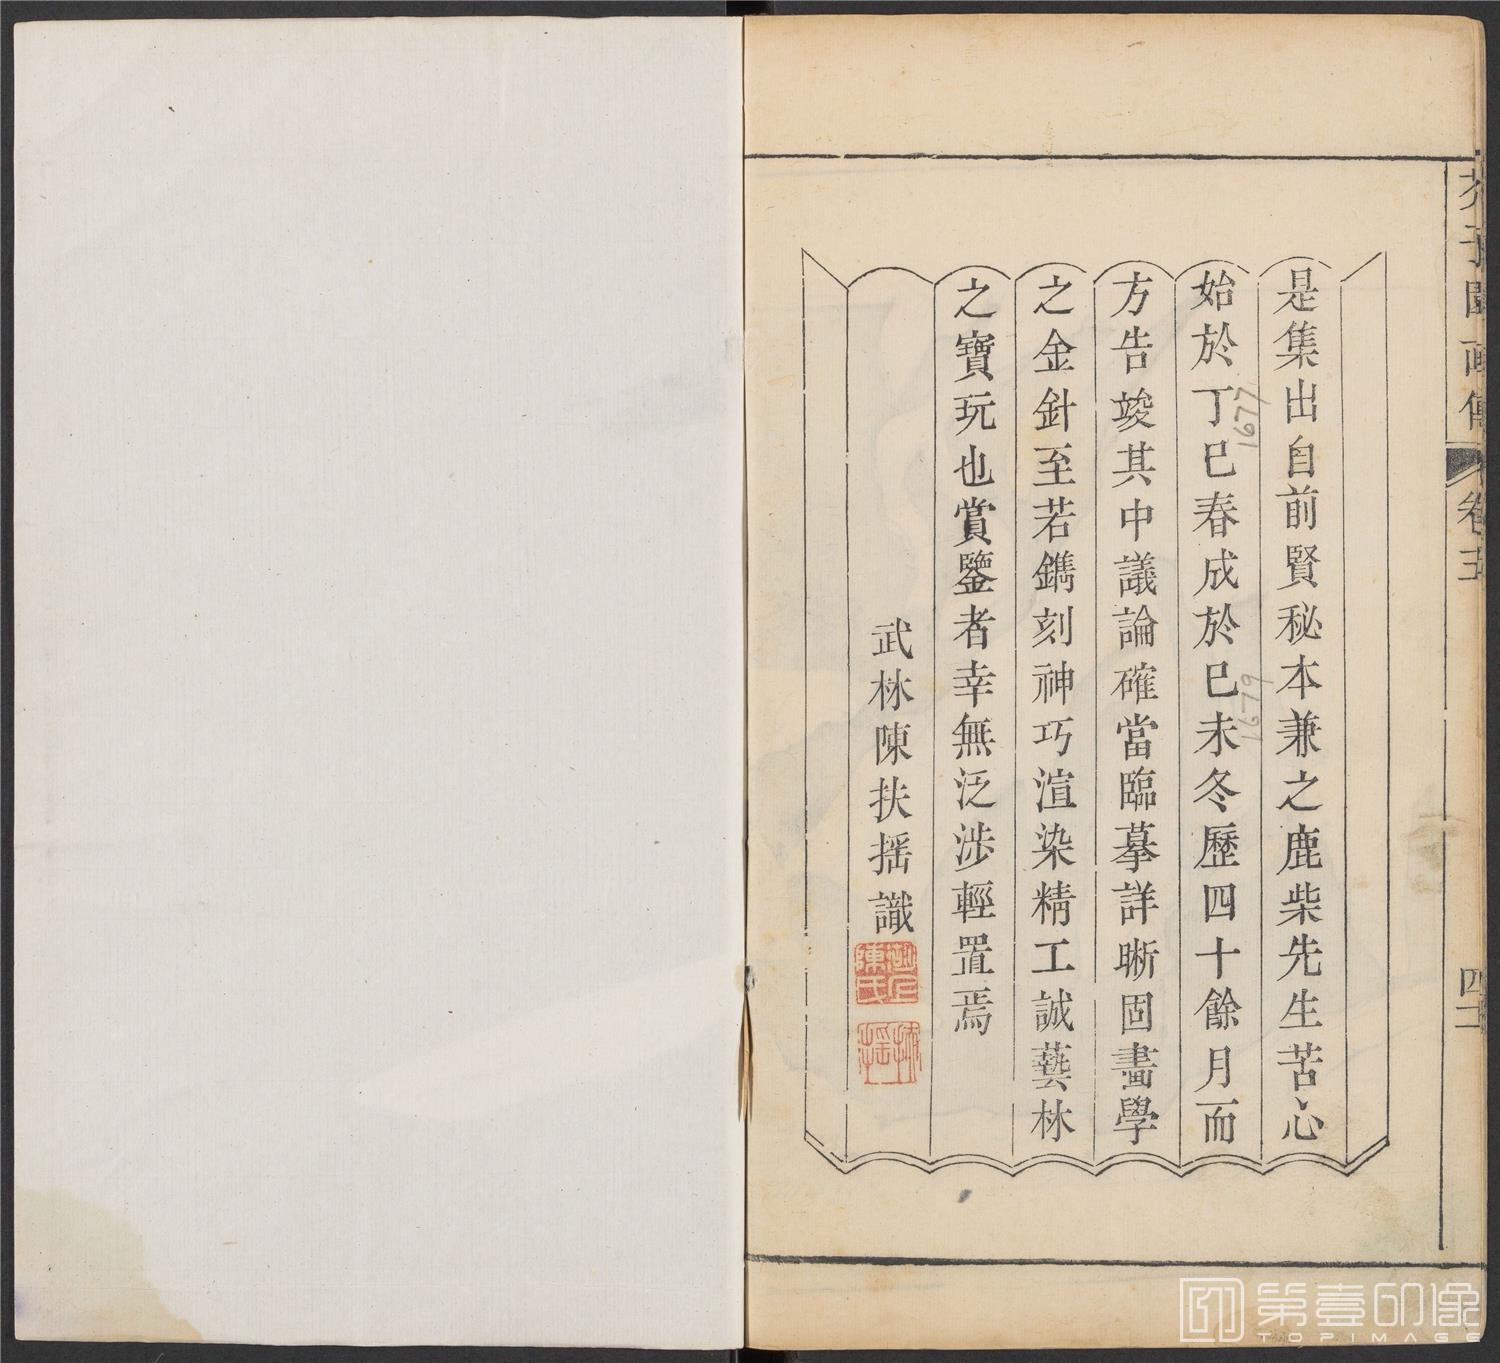 芥子園画傳 卷五 四二
是集出自前賢秘本兼之鹿柴先生苦心
始於丁巳春成於巳未冬歷四十餘月而
方告竣其中議論確當臨摹詳晰固畫學
之金針至若鐫刻神巧渲染精工誠藝林
之寶玩也賞鑒者幸無泛涉輕置焉
武林陳扶摇識
陳氏
扶摇
1677
1679
第壹印像
TOPIMAGE